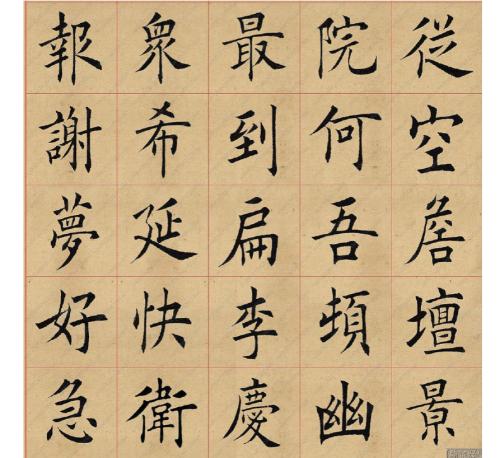 從空詹壇景
院何吾頓幽
最到扁李慶
衆希延快衛
報謝夢好急